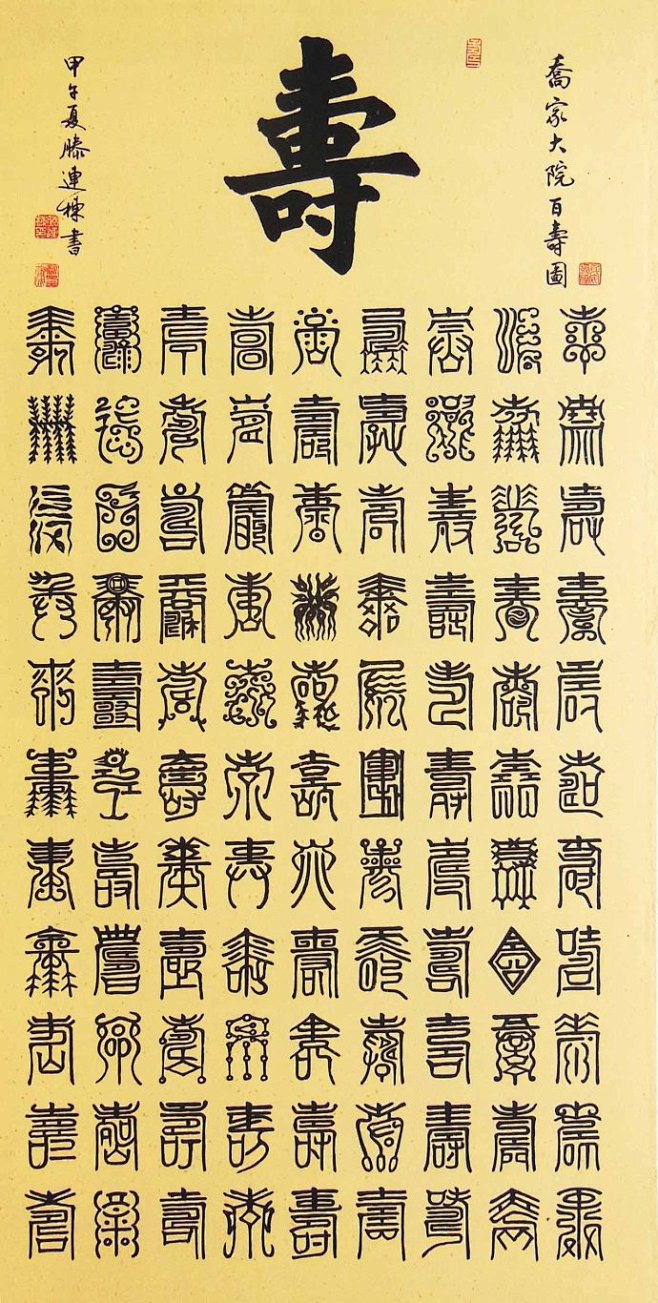 喬家大院百壽圖
壽
壽壽壽壽壽壽壽壽壽壽壽
壽壽壽壽壽壽壽壽壽壽壽
壽壽壽壽壽壽壽壽壽壽壽
壽壽壽壽壽壽壽壽壽壽壽
壽壽壽壽壽壽壽壽壽壽壽
壽壽壽壽壽壽壽壽壽壽壽
壽壽壽壽壽壽壽壽壽壽壽
壽壽壽壽壽壽壽壽壽壽壽
壽壽壽壽壽壽壽壽壽壽壽
甲午夏滕連棟書